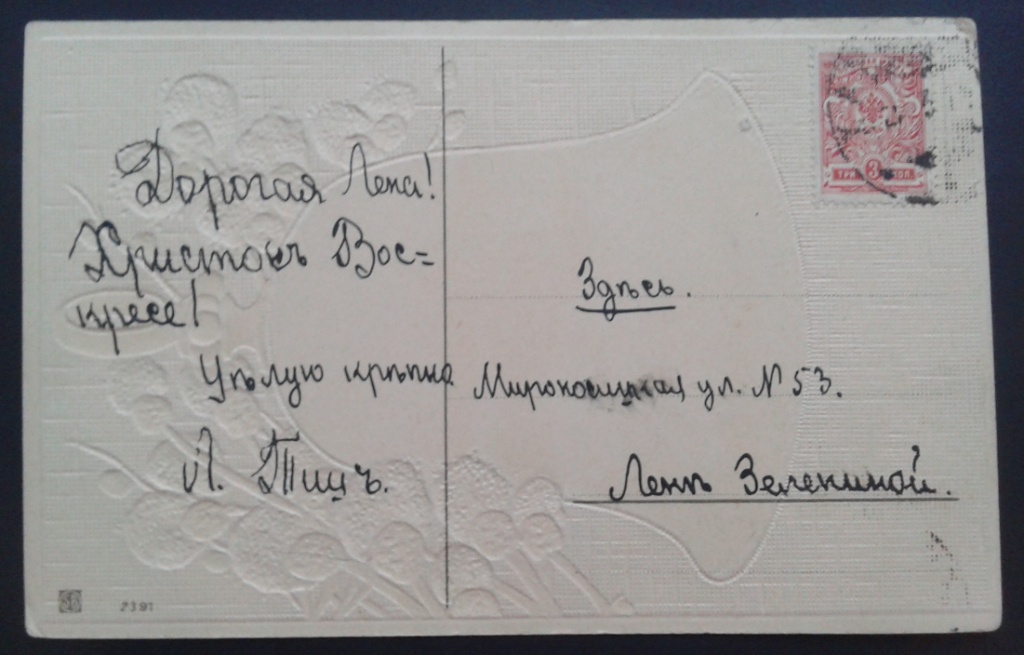 Дорогая Лена!
Христосъ Вос=
кресе!
Цѣлую крѣпко
Л. Тицъ.
Здѣсь.
Мироносицкая ул. N 53.
Ленѣ Зелениной.
ТРИ 3 КОП.
2391